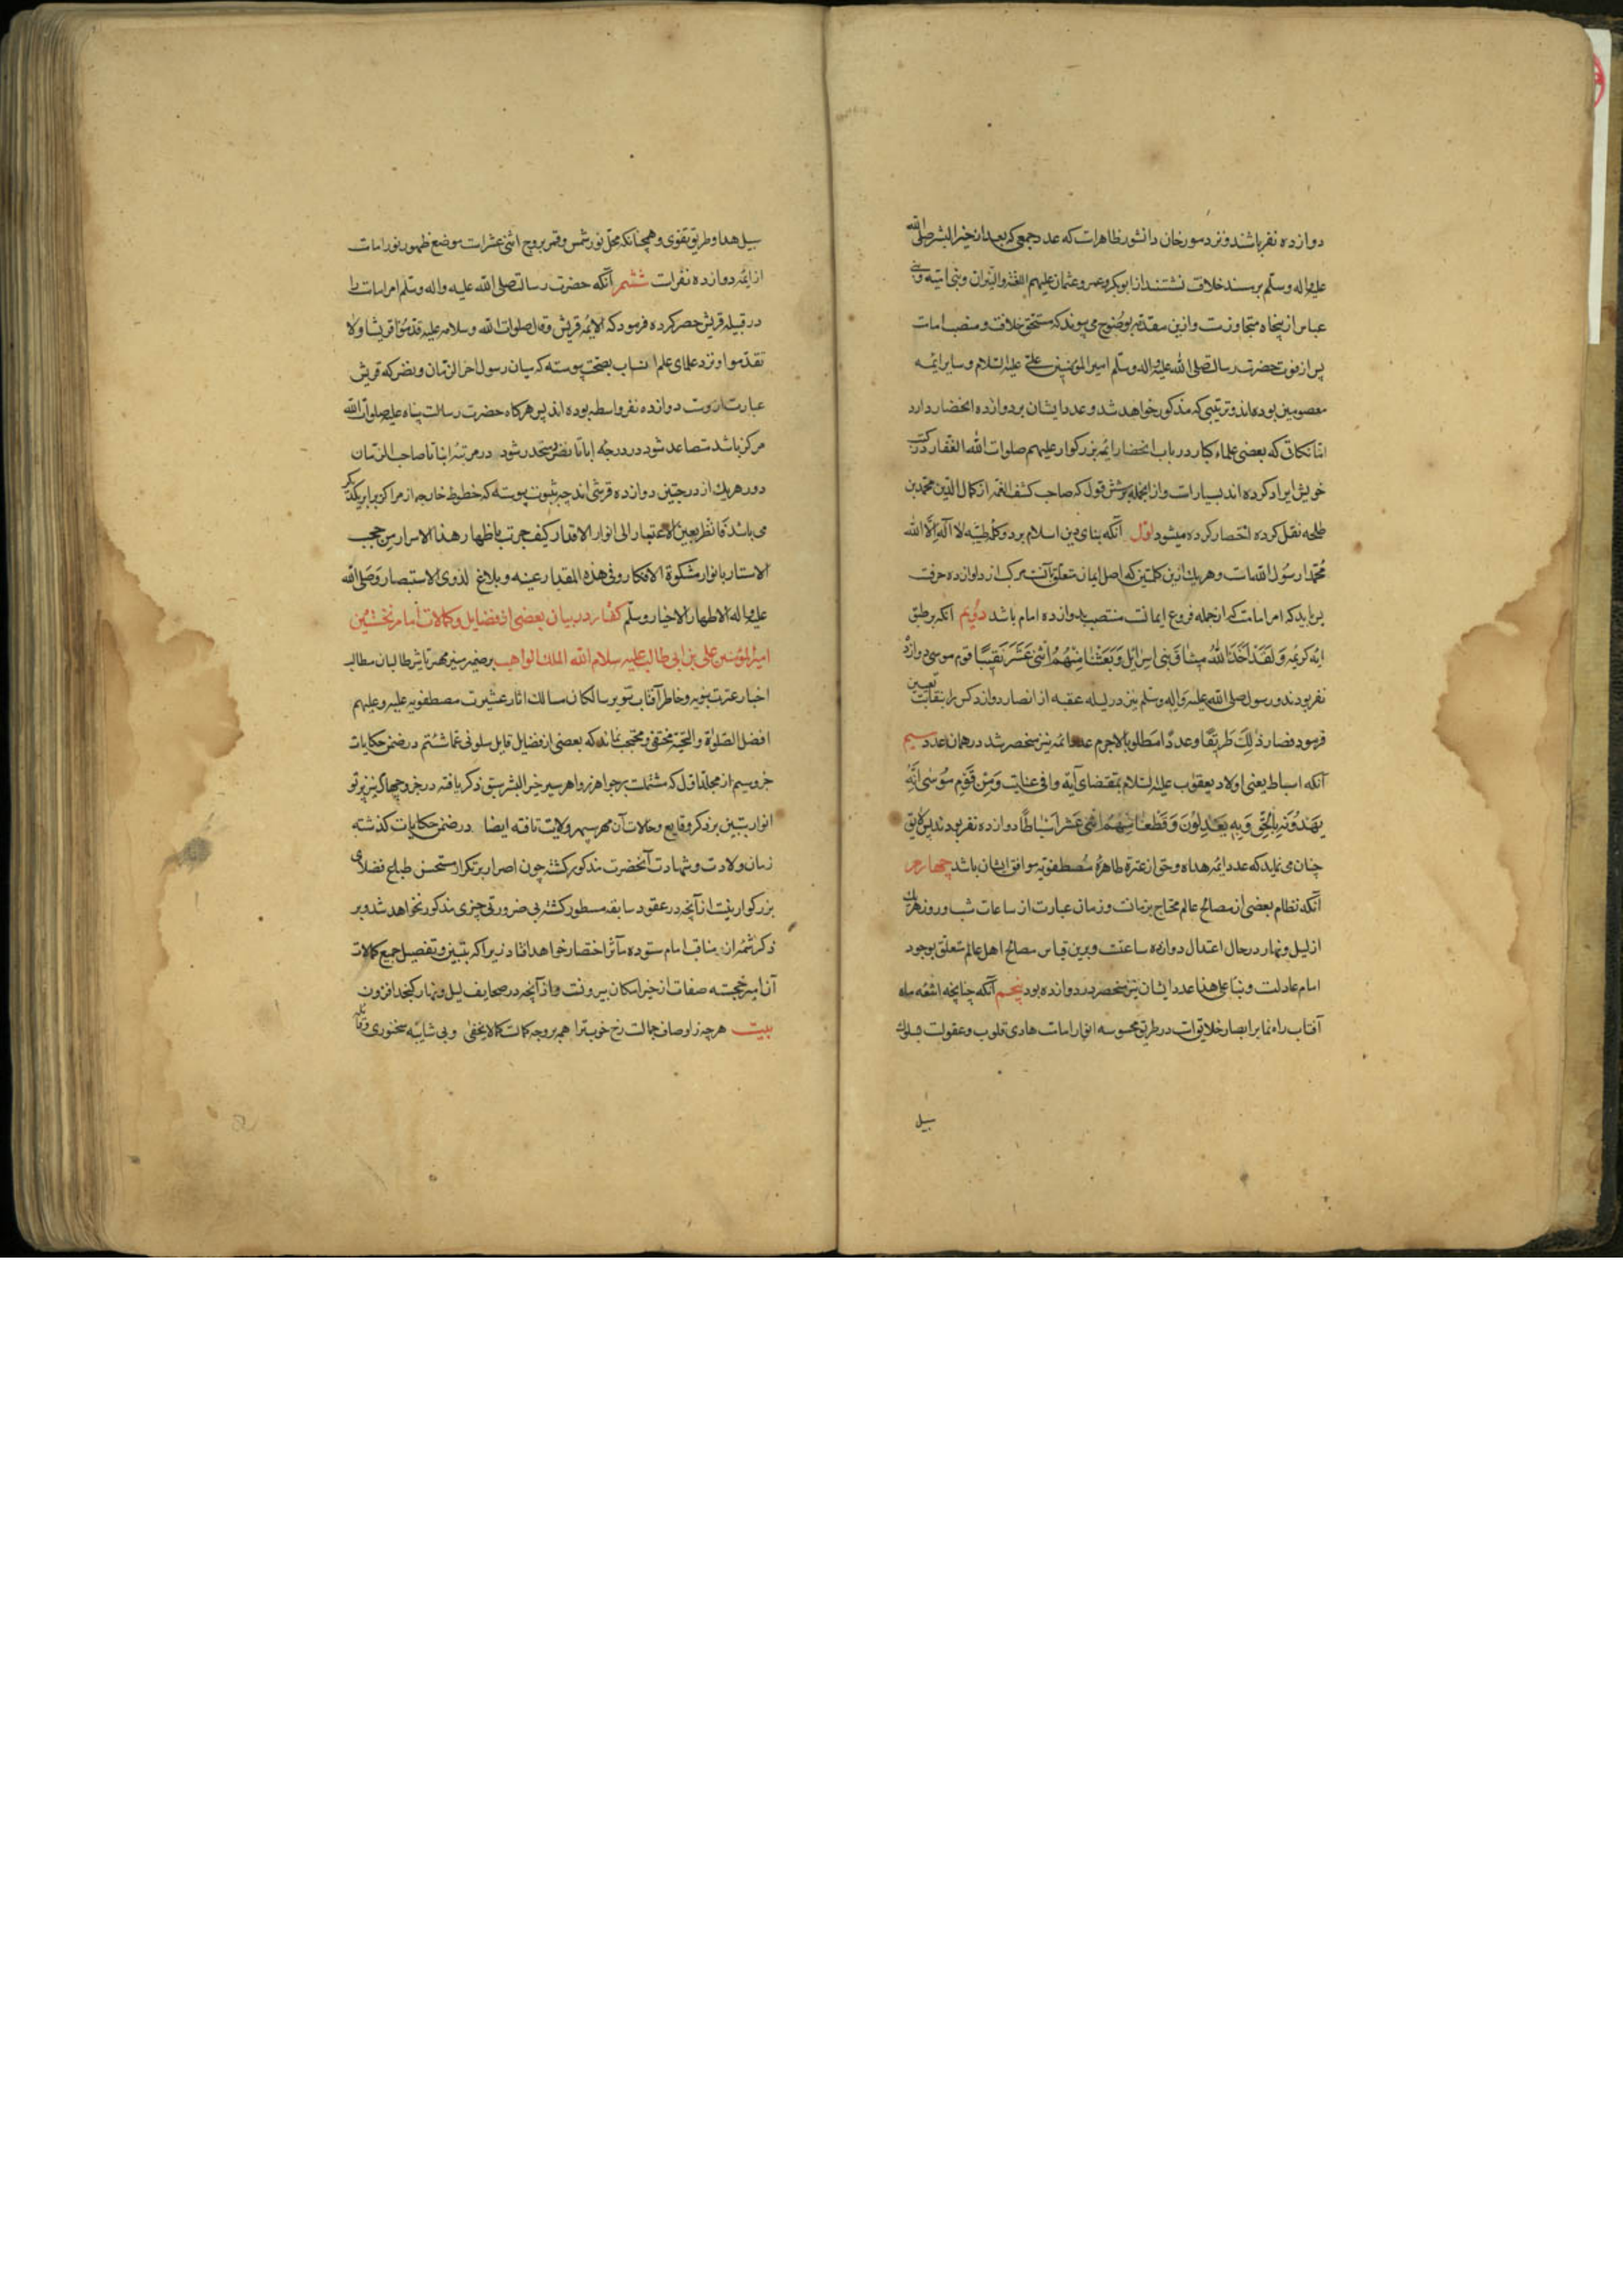 دوازده نفر باشند و نزد مورخان دانشور ظاهرات که عدد جمعی که بعد از خیر البشر صلی الله
علیه واله وسلم بر مسند خلافت نشستند از ابوبکر و عمر و عثمان علیهم و النیران و بنی امیه و بنی
عباس از پنجاه متجاوزست و ازین مقدمه بوضوح می پیوند که مستحق خلافت و منصب امامت
پس از فوت حضرت رسالت صلی الله علیه واله وسلم امیر المؤمنین علی علیه السلام و سایر ائمه
معصومین بوده اند و ترتیبی که مذکور خواهد شد و عدد ایشان بر دوازده انحصار دارد
اما نکاتی که بعضی علماء کبار در باب انحصار ائمه بزرکوار علیهم صلوات الله الغفار در کتب
خویش ایراد کرده اند بسیارات و از انجمله بر شش قول که صاحب کشف الغمه از کمال الدین محمد بن
طلحه نقل کرده اختصار کرده میشود اول آنکه بنای دین اسلام بر دو کلمه طیبه لا اله الا الله
محمد رسول الله است و هریک ازین کلمتین که اصل ایمان متعلق بآنست مرکب از دوازده حرفت
پس باید که امر امامت که از جمله فروع ایمانت منتصب بدوازده امام باشد دویم آنکه بر طبق
ایه کریمه وَلَقَد اَخَذَ اللهُ میثاقَ بَنی اسرائیل وَبَعَثنا مِنهُمُ اثنی عَشَرَ نَقیبًا قوم موسی دوازده
نفر بودند و رسول صلی الله علیه واله وسلم نیز در لیله عقبه از انصار دوازده کس را بنقابت تعیین
فرمود فصار ذلِکَ طریقًا و عددًا مطلوبا لاجرم عدد ائمه نیز منحصر شد در همان عدد سیم
آنکه اسباط یعنی اولاد یعقوب علیه السلام بمقتضای آیه وافی عنایت وَمِن قَومِ مُوسی اُمَّةٌ
یَهدُونَ بِالحَقِّ وَبِهِ یَعدِلُونَ وَقَطَّعنا هُمُ اثنَی عَشَرَ اَسباطًا دوازده نفر بودند پس لایق
چنان می نماید که عدد ائمه هداه و حق از عترة طاهرهٔ مصطفویه موافق ایشان باشد چهارم
آنکه نظام بعضی از مصالح عالم محتاج بزمانت و زمان عبارت از ساعات شب و روز و هریک
از لیل و نهار در حال اعتدال دوازده ساعتت و برین قیاس مصالح اهل عالم متعلق بوجود
امام عادلت و بنا علی هذا عدد ایشان نیز منحصر در دوازده بود پنجم آنکه چنانچه اشعه ماه
آفتاب راه نما بر ابصار خلایق است در طریق محسوسه انوار امامت هادی قلوب و عقولت بسلوک
سبیل
سبیل هدا و طریق تقوی و همچنانکه محل نور شمس و قمر بروج اثنی عشرات موضع ظهور نور امامت
از ائمه دوازده نفرات ششم آنکه حضرت رسالت صلی الله علیه واله وسلم امر امامت را
در قبیله قریش حصر کرده فرمود که الائمه قریش و قال صلوات الله و سلامه علیه قدموا قریشا و لا
تقدموا و نزد علمای علم انساب بصحت پیوسته که میان رسول اخر الزمان و نضر که قریش
عبارت از وست دوازده نفر واسطه بوده اند پس هرکاه حضرت رسالت پناه علیه صلوات الله
مرکز باشد متصاعد شود در درجه اباء تا نضر و منحدر شود در مرتبه ابنا تا صاحب الزمان
در هریک از درجتین دوازده قرشی اند چه بثبوت پیوسته که خطوط خارجه از مرکز برابر یکدیکر
می باشد فانظر بعین الاعتبار الی انوار الاقدار کیف جرت باظهار هذا الاسرار من حجب
الاستار بانوار مشکوة الافکار و فی هذه المقدار عنیه و بلاغ لذوی الاستبصار وصلی الله
علیه واله الاطهار الاخیار وسلم گفتار در بیان بعضی از فضایل و کمالات امام نخستین
امیر المؤمنین علی بن ابی طالب علیه سلام الله الملک الواهب بر ضمیر منیر مهر تاثیر طالبان مطالب
اخبار عترت نبویه و خاطر آفتاب تنویر سالکان مسالک اثار عشیرت مصطفویه علیه و علیهم
افضل الصلوة والتحیة مختفی و محتجب نماند که بعضی از فضایل قایل سلونی عما شئتم در ضمن حکایات
جزو سیم از مجلد اول که مشتملت بر جواهر زواهر سیر خیر البشر سبق ذکر یافته در جزو چهارم نیز پرتو
انوار تبیین بر ذکر وقایع و حالات آن مهر سپهر ولایت تافته ایضا در ضمن حکایات کذشته
زمان ولادت و شهادت آنحضرت مذکور کشته چون اصرار بر تکرار مستحسن طباع فضلای
بزرکوار نیست از آنچه در عقود سابقه مسطور کشته بی ضرورتی چیزی مذکور نخواهد شد و بر
ذکر شمه از مناقب امام ستوده مآثر اختصار خواهد افتاد زیرا که تبیین و تفصیل جمیع کمالات
آن امیر خجسته صفات از حیز امکان بیرونت و از آنچه در صحایف لیل و نهار کنجد افزون
بیت هرچه ز اوصاف جمالت رخ خوبترا همه بر وجه کمالت کما لا یخفی و بی شایبه سخنوری و